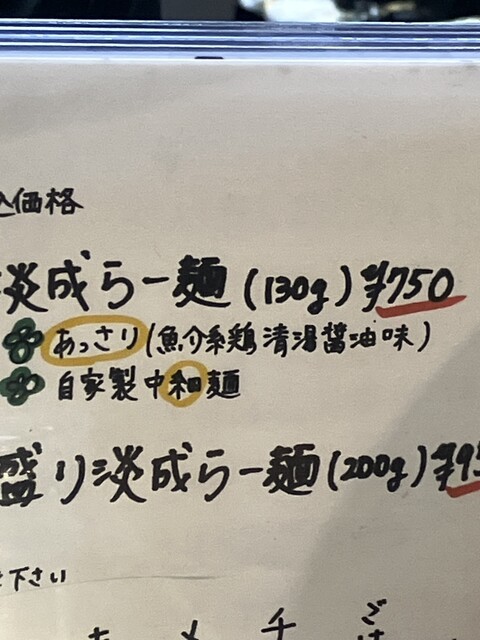 込価格
淡成らー麺(130g)¥750
あっさり(魚介系鶏清湯醤油味)
自家製中細麺
盛り淡成らー麺(200g)¥95
下さい
チ
ご